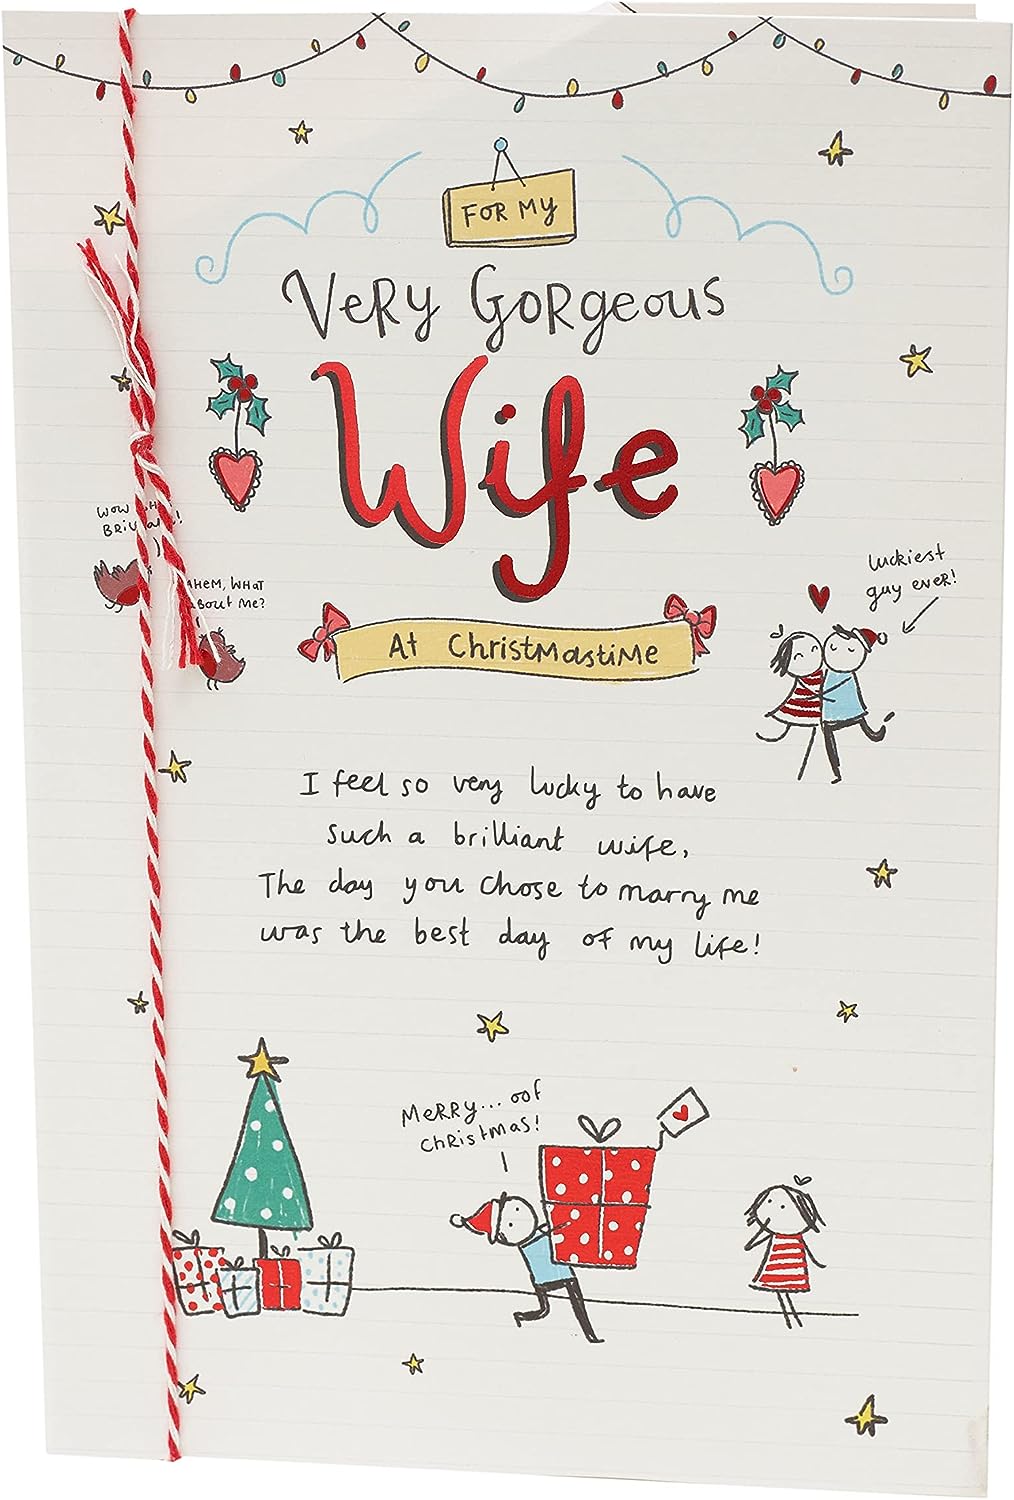 FOR MY
VeRy GoRgeous
Wife
At ChristmastiMe
WOW
BRI
AHEM, WHAT
about Me?
luckiest
guy ever!
I feel so very lucky to have
such a brilliant wife,
The day you chose to marry me
was the best day of my life!
MeRRy... oof
christmas!